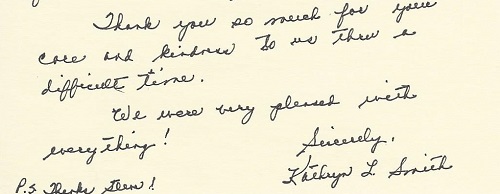 Thank you so much for your
care and kindness to us thru a
difficult time.
We were very pleased with
everything!
Sicerely,
Kathryn L. Smith
P.S. Thanks Stew!